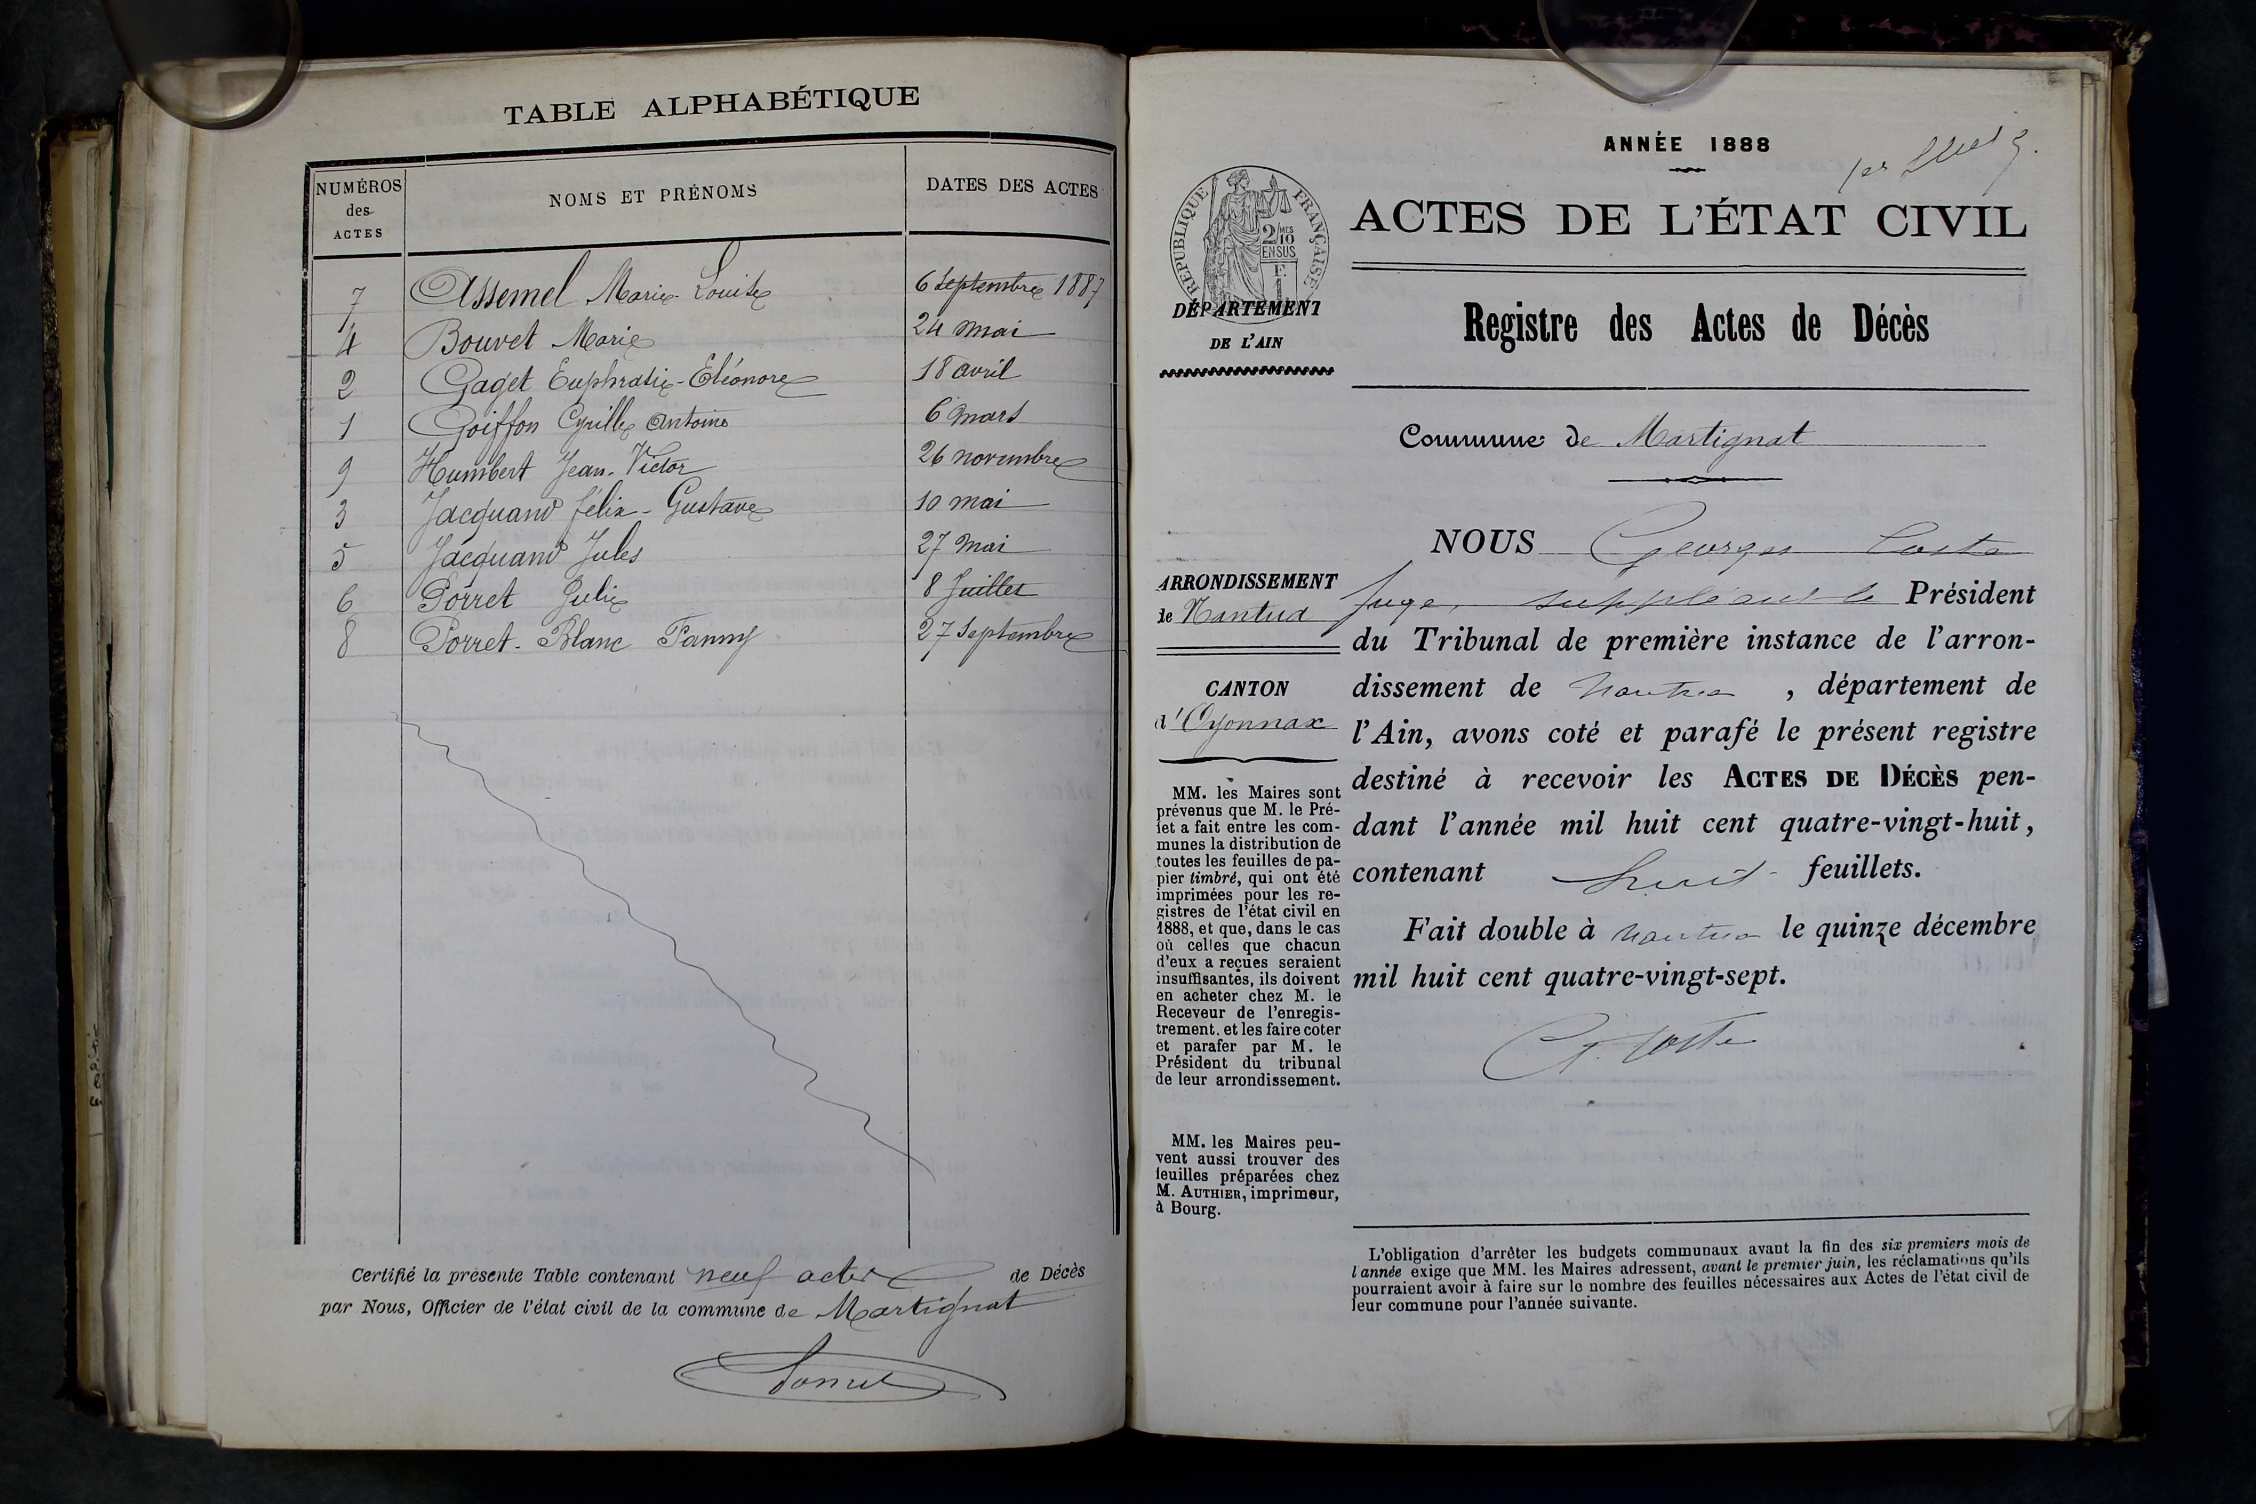 TABLE ALPHABÉTIQUE
NUMÉROS des ACTES NOMS ET PRÉNOMS DATES DES ACTES
7 Assemel Marie Louise 6 Septembre 1887
4 Bouvet Marie 24 mai
2 Gaget Euphrasie-Eléonore 18 avril
1 Goiffon Cyrille Antoine 6 mars
9 Humbert Jean-Victor 26 novembre
3 Jacquand félix-Gustave 10 mai
5 Jacquand Jules 27 mai
6 Porret Julie 8 Juillet
8 Porret-Blanc Fanny 27 Septembre
Certifié la présente Table contenant neuf actes de Décès
par Nous, Officier de l'état civil de la commune de Martignat
ANNÉE 1888
1er
RÉPUBLIQUE FRANÇAISE
2/10 MES
EN SUS
ACTES DE L'ÉTAT CIVIL
DÉPARTEMENT
DE L'AIN
Registre des Actes de Décès
Commune de Martignat
ARRONDISSEMENT
de Nantua
CANTON
d'Oyonnax
MM. les Maires sont
prévenus que M. le Pré-
fet a fait entre les com-
munes la distribution de
toutes les feuilles de pa-
pier timbré, qui ont été
imprimées pour les re-
gistres de l'état civil en
1888, et que, dans le cas
où celles que chacun
d'eux a reçues seraient
insuffisantes, ils doivent
en acheter chez M. le
Receveur de l'enregis-
trement, et les faire coter
et parafer par M. le
Président du tribunal
de leur arrondissement.
MM. les Maires peu-
vent aussi trouver des
feuilles préparées chez
M. AUTHIER, imprimeur,
à Bourg.
NOUS Georges Coste
juge suppléant le Président
du Tribunal de première instance de l'arron-
dissement de Nantua , département de
l'Ain, avons coté et parafé le présent registre
destiné à recevoir les ACTES DE DÉCÈS pen-
dant l'année mil huit cent quatre-vingt-huit,
contenant huit feuillets.
Fait double à Nantua le quinze décembre
mil huit cent quatre-vingt-sept.
G. Coste
L'obligation d'arrêter les budgets communaux avant la fin des six premiers mois de
l'année exige que MM. les Maires adressent, avant le premier juin, les réclamations qu'ils
pourraient avoir à faire sur le nombre des feuilles nécessaires aux Actes de l'état civil de
leur commune pour l'année suivante.